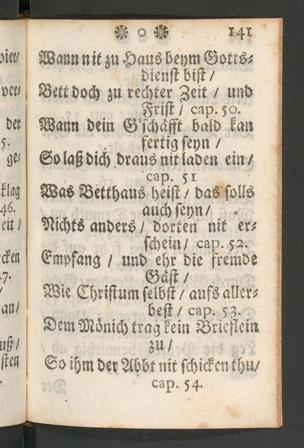 ❋ o ❋ 141
Wann nit zu Haus beym Gotts-
dienst bist /
Bett doch zu rechter Zeit / und
Frist / cap. 50.
Wann dein G'schäfft bald kan
fertig seyn /
So laß dich draus nit laden ein /
cap. 51
Was Betthaus heist / das solls
auch seyn /
Nichts anders / dorten nit er-
schein / cap. 52.
Empfang / und ehr die fremde
Gäst /
Wie Christum selbst / aufs aller-
best / cap. 53.
Dem Mönich trag kein Brieflein
zu /
So ihm der Abbt nit schicken thu /
cap. 54.
der
5.
klag
46.